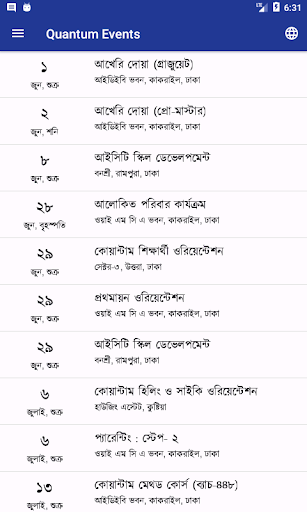 LTE 6:31
Quantum Events
১
জুন, শুক্র
আখেরি দোয়া (গ্রাজুয়েট)
আইডিইবি ভবন, কাকরাইল, ঢাকা
২
জুন, শনি
আখেরি দোয়া (প্রো-মাস্টার)
আইডিইবি ভবন, কাকরাইল, ঢাকা
৮
জুন, শুক্র
আইসিটি স্কিল ডেভেলপমেন্ট
বনশ্রী, রামপুরা, ঢাকা
২৮
জুন, বৃহস্পতি
আলোকিত পরিবার কার্যক্রম
ওয়াই এম সি এ ভবন, কাকরাইল, ঢাকা
২৯
জুন, শুক্র
কোয়ান্টাম শিক্ষার্থী ওরিয়েন্টেশন
সেক্টর-৩, উত্তরা, ঢাকা
২৯
জুন, শুক্র
প্রথমায়ন ওরিয়েন্টেশন
ওয়াই এম সি এ ভবন, কাকরাইল, ঢাকা
২৯
জুন, শুক্র
আইসিটি স্কিল ডেভেলপমেন্ট
বনশ্রী, রামপুরা, ঢাকা
৬
জুলাই, শুক্র
কোয়ান্টাম হিলিং ও সাইকি ওরিয়েন্টেশন
হাউজিং এস্টেট, কুষ্টিয়া
৬
জুলাই, শুক্র
প্যারেন্টিং : স্টেপ- ২
ওয়াই এম সি এ ভবন, কাকরাইল, ঢাকা
১৩
জুলাই, শুক্র
কোয়ান্টাম মেথড কোর্স (ব্যাচ-৪৪৮)
আইডিইবি ভবন, কাকরাইল, ঢাকা